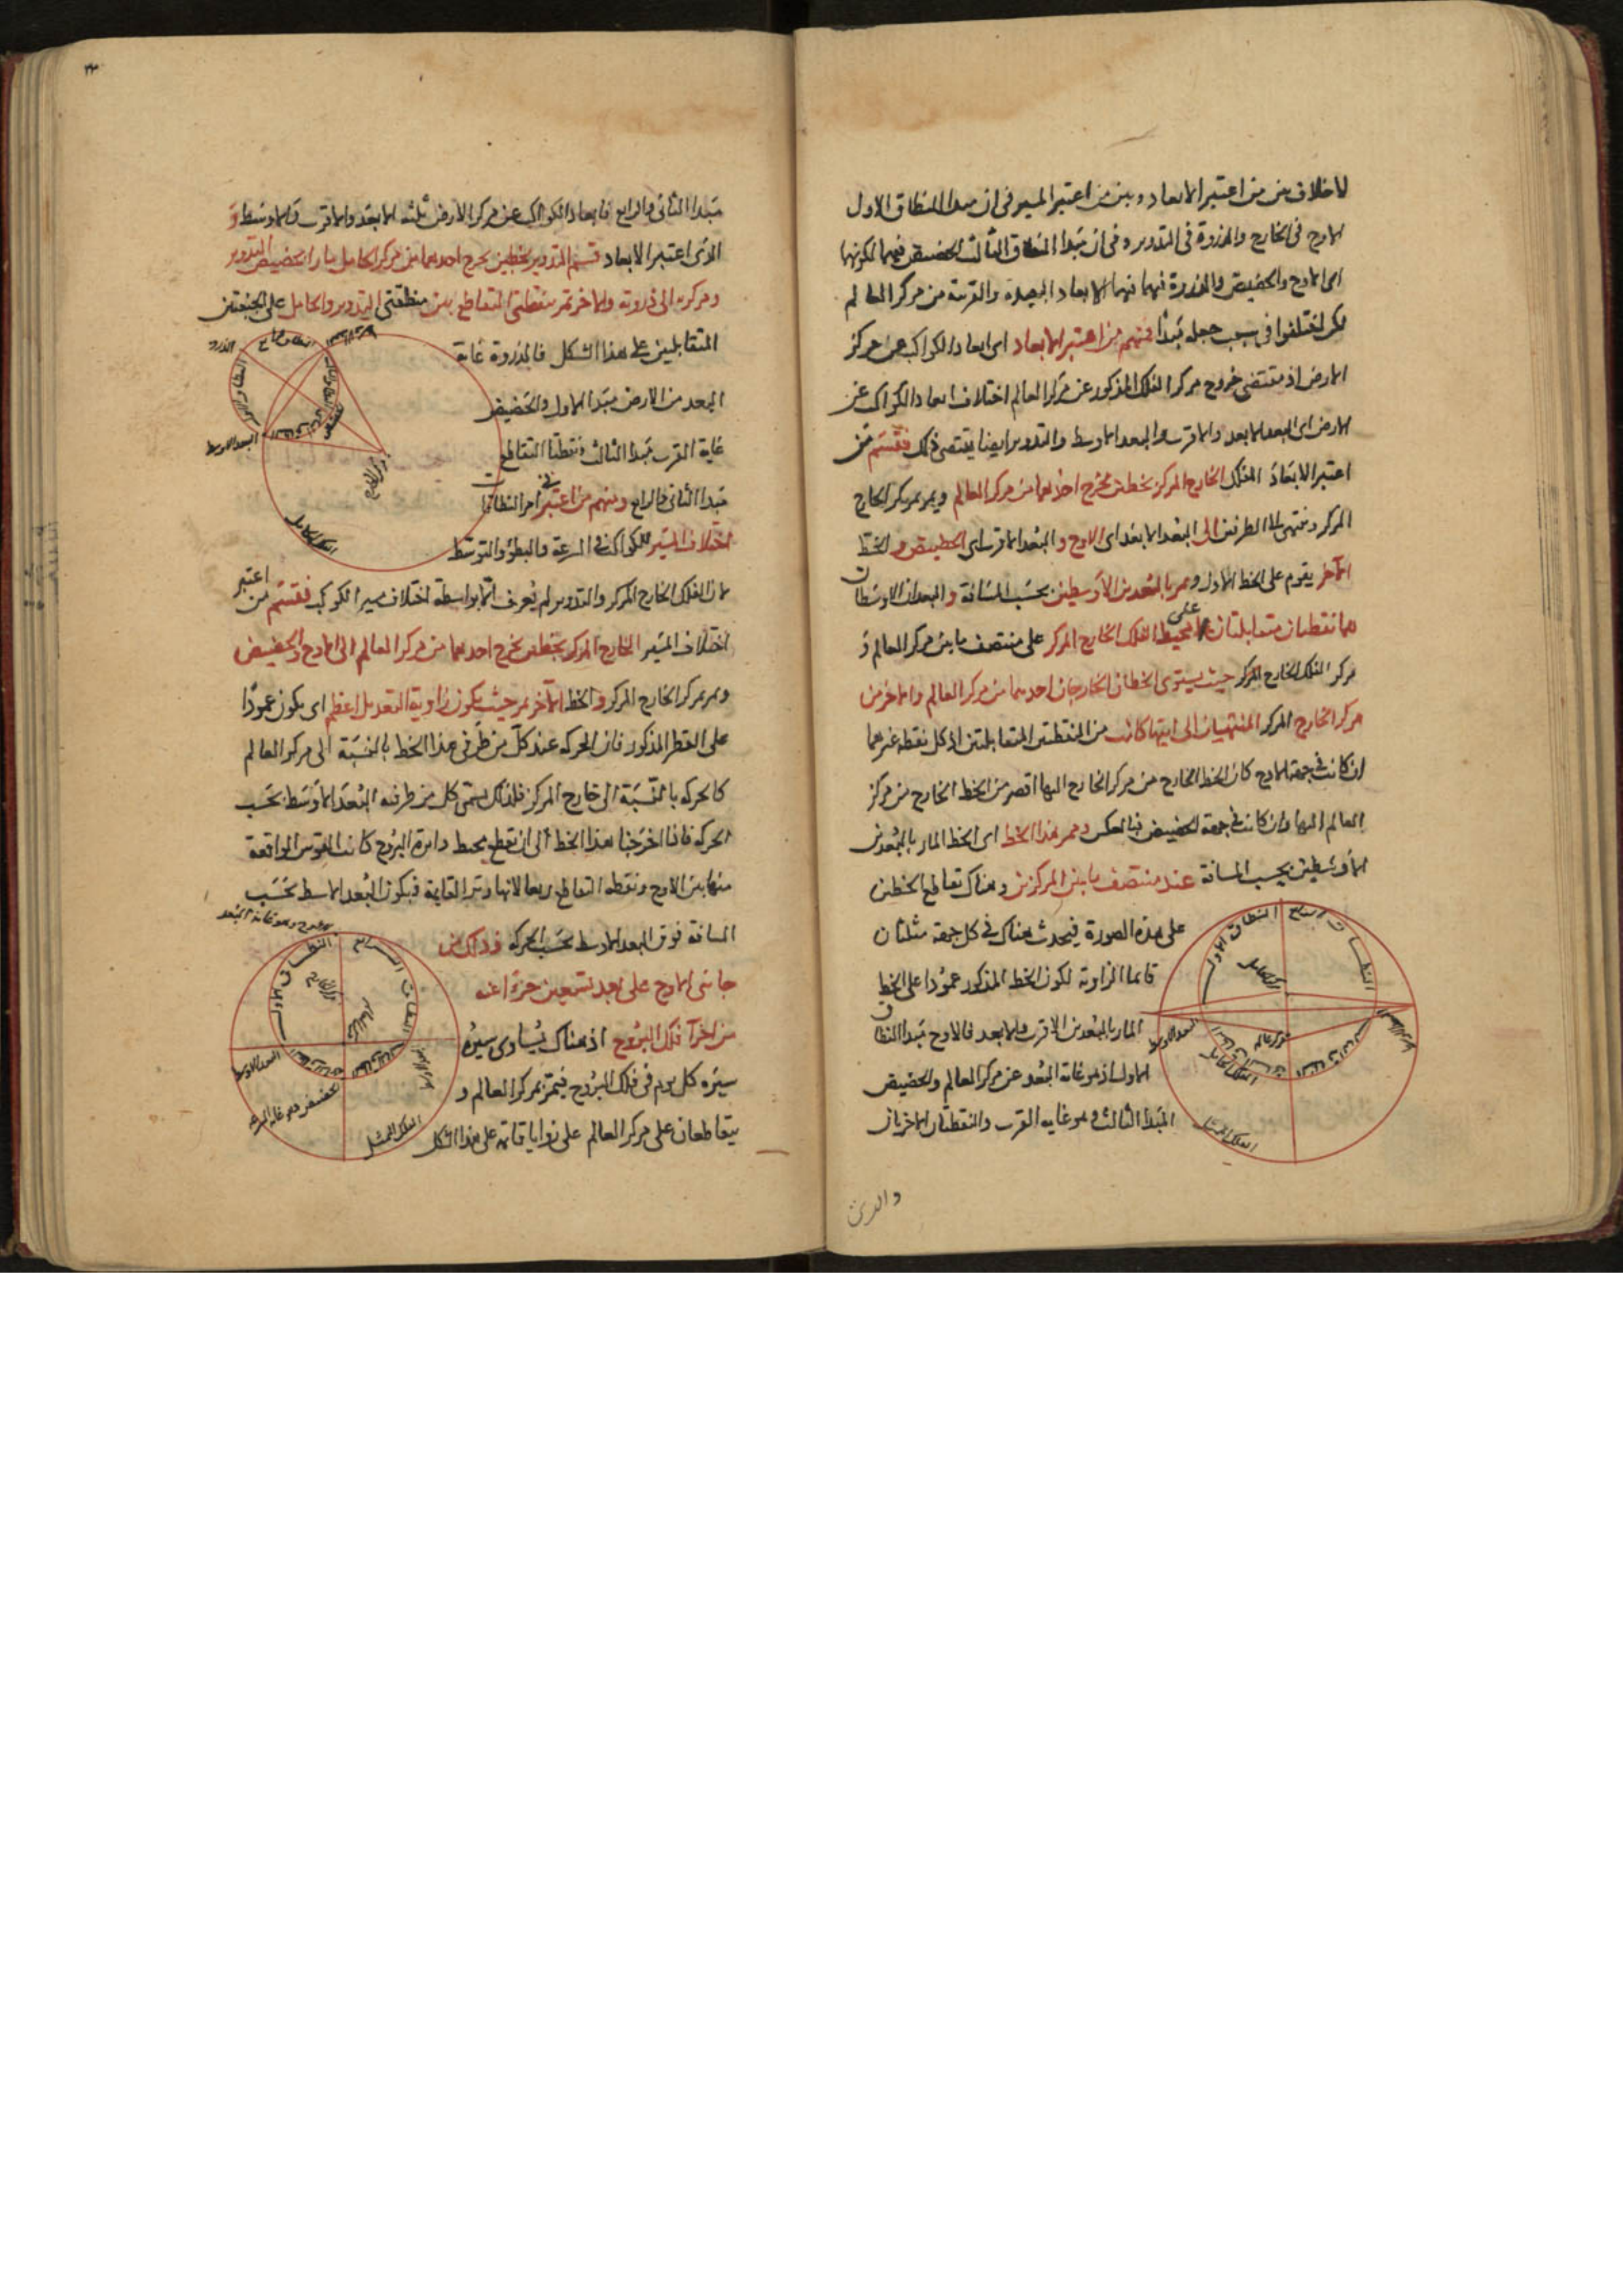 لا خلاف بين من اعتبر الابعاد وبين من اعتبر المسير فى ان مبدا النطاق الاول
الاوج فى الخارج والذروة فى التدوير وفى ان مبدا النطاق الثالث الحضيض فيهما لكونهما
اى الاوج والحضيض والذروة فيهما نهايتا الابعاد البعيدة والقريبة من مركز العالم
لكن اختلفوا فى سبب جعله مبدأ فمنهم من اعتبر الابعاد اى ابعاد الكواكب عن مركز
الارض اذ مقتضى خروج مركز الفلك المذكور عن مركز العالم اختلاف ابعاد الكواكب عن
الارض اى البعد الابعد والاقرب والبعد الاوسط والتدوير ايضا يقتضى ذلك فقسم من
اعتبر الابعاد الفلك الخارج المركز بخطين يخرج احدهما من مركز العالم ويمر بمركز الخارج
المركز وينتهى الطرفين الى البعد الابعد اى الاوج والبعد الاقرب اى الحضيض والخط
الآخر يقوم على الخط الاول ويمر بالبعدين الاوسطين بحسب المسافة والبعدان الاوسطان
هما نقطتان متقابلتان على محيط الفلك الخارج المركز على منتصف ما بين مركز العالم و
مركز الفلك الخارج المركز حيث يستوى الخطان الخارجان احدهما من مركز العالم والاخر من
مركز الخارج المركز المنتهيان الى ايتهما كانت من النقطتين المتقابلتين اذ كل نقطة غيرهما
ان كانت فى جهة الاوج كان الخط الخارج من مركز الخارج اليها اقصر من الخط الخارج من مركز
العالم اليها وان كانت فى جهة الحضيض فبالعكس وممر هذا الخط اى الخط المار بالبعدين
الاوسطين بحسب المسافة عند منتصف ما بين المركزين وهناك تقاطع الخطين
على هذه الصورة فيحدث هناك فى كل جهة مثلثان
قائما الزاوية لكون الخط المذكور عمودا على الخط
المار بالبعدين الاقرب والابعد فالاوج مبدا النطاق
الاول اذ هو غاية البعد عن مركز العالم والحضيض
المبدا الثالث وهو غاية القرب والنقطتان الاخريان
النطاق الاول
النطاق الرابع
مركز الحامل
مركز العالم
البعد الاوسط
البعد الاوسط
الفلك الحامل
الفلك الممثل
مبدا الثانى والرابع فابعاد الكواكب عن مركز الارض ثلثة الابعد والاقرب والاوسط و
الذى اعتبر الابعاد قسم التدوير بخطين يخرج احدهما من مركز الحامل مارا بحضيض التدوير
ومركزه الى ذروته والاخر يمر بنقطتى التقاطع بين منطقتى التدوير والحامل على الجنبتين
المتقابلين على هذا الشكل فالذروة غاية
البعد من الارض مبدا الاول والحضيض
غاية القرب مبدا الثالث ونقطتا التقاطع
مبدا الثانى والرابع ومنهم من اعتبر فى امر النطاقات
اختلاف المسير للكواكب فى السرعة والبطؤ والتوسط
لان الفلك الخارج المركز والتدوير لم يعرف الا بواسطة اختلاف مسير الكوكب فقسم من اعتبر
اختلاف المسير الخارج المركز بخطين يخرج احدهما من مركز العالم الى الاوج والحضيض
ويمر بمركز الخارج المركز والخط الآخر يمر حيث يكون زاوية التعديل اعظم اى يكون عمودا
على القطر المذكور فان الحركة عند كل من طرفى هذا الخط بالنسبة الى مركز العالم
كالحركة بالنسبة الى خارج المركز فلذلك يسمى كل من طرفيه البعد الاوسط بحسب
الحركة فاذا اخرجنا هذا الخط الى ان يقطع محيط دايرة البروج كانت القوس الواقعة
منها بين الاوج ونقطة التقاطع ربعا لانها وتر القايمة فيكون البعد الاوسط بحسب
المسافة فوق البعد الاوسط بحسب الحركة وذلك من
جانبى الاوج على بعد تسعين جزءا عنه
من اجزآ فلك البروج اذ هناك يساوى سيره
سيره كل يوم فى فلك البروج فيمر بمركز العالم و
يتقاطعان على مركز العالم على زوايا قائمة على هذا الشكل
الذروة
البعد الاوسط
الفلك الحامل
الاوج وهو غاية البعد
النطاق الاول
النطاق الرابع
مركز الخارج
مركز العالم
البعد الاوسط
الحضيض وهو غاية القرب
الفلك الممثل